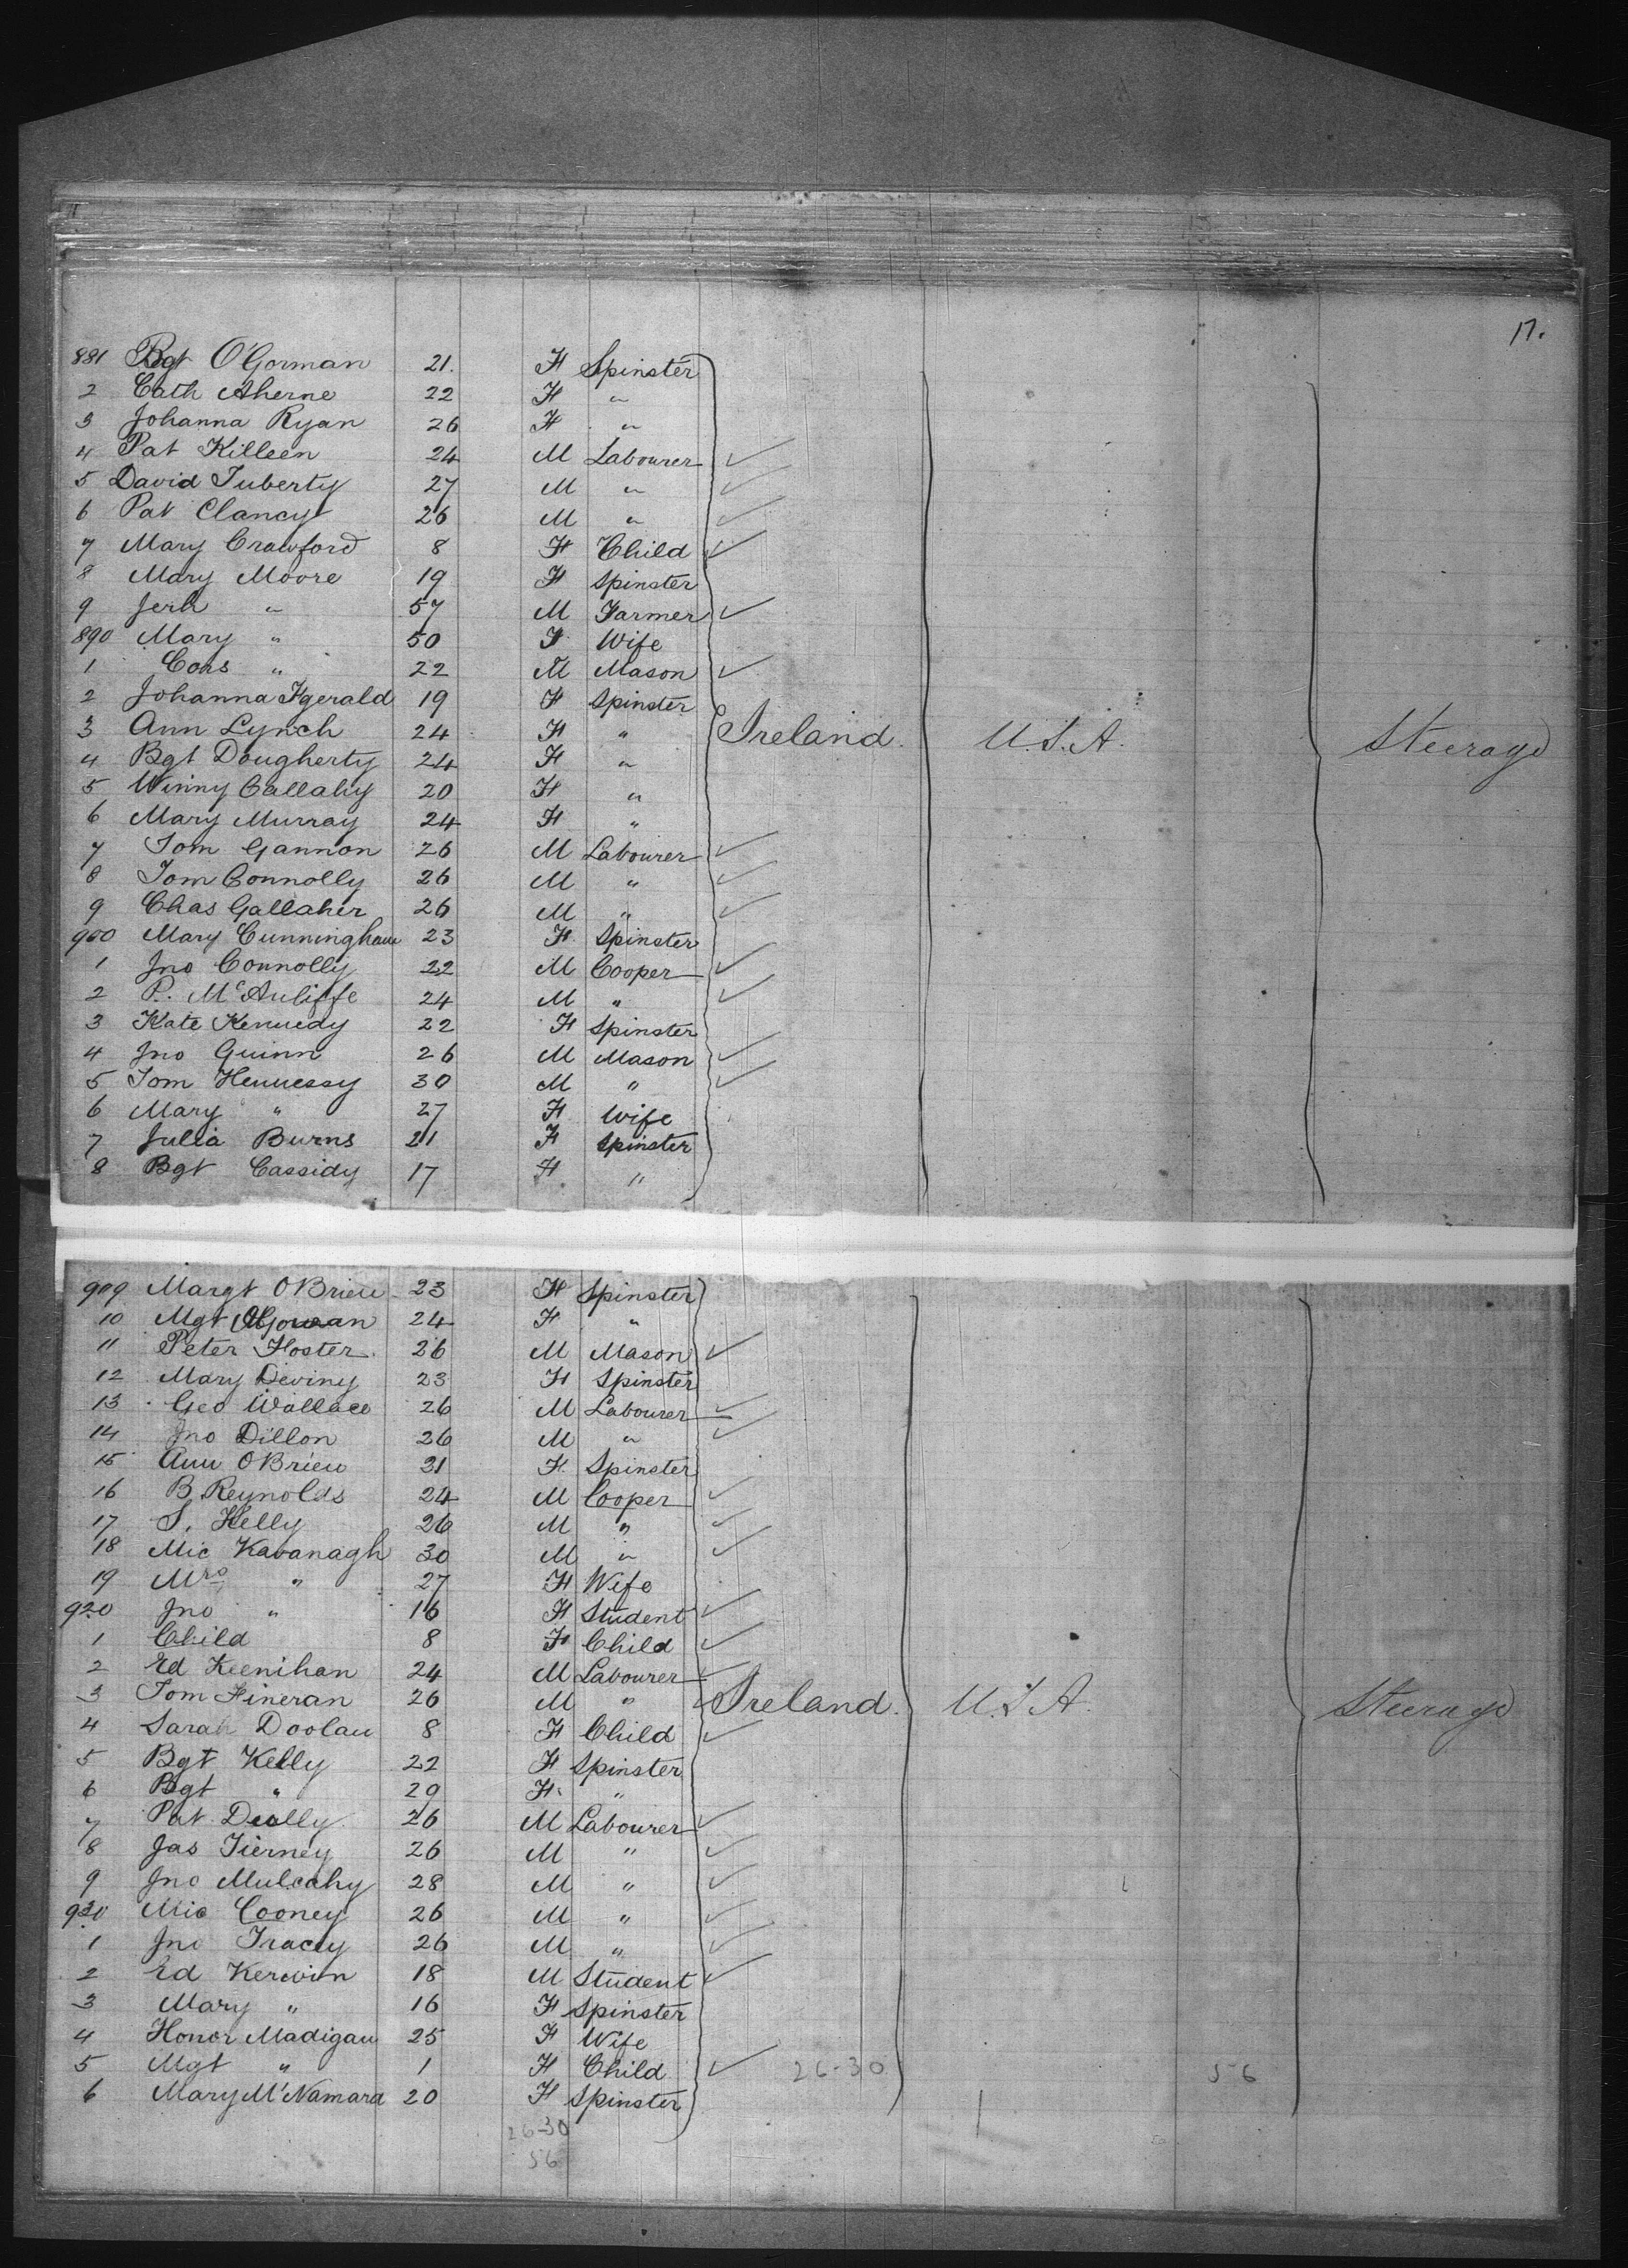 17.
881 Bgt O'Gorman 21. F Spinster
2 Cath Aherne 22 F "
3 Johanna Ryan 26 F "
4 Pat Killeen 24 M Labourer
5 David Tuberty 27 M "
6 Pat Clancy 26 M "
7 Mary Crawford 8 F Child
8 Mary Moore 19 F Spinster
9 Jerh " 57 M Farmer
890 Mary " 50 F Wife
1 Cons " 22 M Mason
2 Johanna Fgerald 19 F Spinster
3 Ann Lynch 24 F " Ireland. U.S.A. Steerage
4 Bgt Dougherty 24 F "
5 Winny Callahy 20 F "
6 Mary Murray 24 F "
7 Tom Gannon 26 M Labourer
8 Tom Connolly 26 M "
9 Chas Gallaher 26 M "
900 Mary Cunningham 23 F Spinster
1 Jno Connolly 22 M Cooper
2 P. McAuliffe 24 M "
3 Kate Kennedy 22 F Spinster
4 Jno Guinn 26 M Mason
5 Tom Hennessy 30 M "
6 Mary " 27 F Wife
7 Julia Burns 21 F Spinster
8 Bgt Cassidy 17 F "
909 Margt OBrien 23 F Spinster
10 Mgt 24 F "
11 Peter Foster 26 M Mason
12 Mary Deviny 23 F Spinster
13 Geo Wallace 26 M Labourer
14 Jno Dillon 26 M "
15 Ann OBrien 21 F Spinster
16 B. Reynolds 24 M Cooper
17 Kelly 26 M "
18 Mic Kavanagh 30 M "
19 Mrs " 27 F Wife
920 Jno " 16 F Student
1 Child 8 F Child
2 Ed Keenihan 24 M Labourer
3 Tom Fineran 26 M " Ireland. U.S.A. Steerage
4 Sarah Doolan 8 F Child
5 Bgt Kelly 22 F Spinster
6 Bgt " 29 F "
7 Pat 26 M Labourer
8 Jas Tierney 26 M "
9 Jno Mulcahy 28 M "
930 Mic Cooney 26 M "
1 Jno Tracey 26 M "
2 Ed Kerwin 18 M Student
3 Mary " 16 F Spinster
4 Honor Madigan 25 F Wife
5 Mgt " 1 F Child 26-30 56
6 Mary McNamara 20 F Spinster
26-30
56